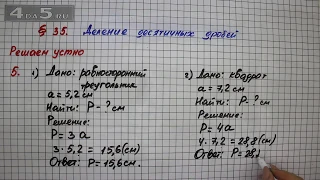 4DA5.RU
§ 35. Деление десятичных дробей
Решаем устно
5. 1) Дано: равносторонний
треугольник
a = 5,2 см
Найти: P - ? см
Решение:
P = 3a
3 · 5,2 = 15,6 (см)
Ответ: P = 15,6 см.
2) Дано: квадрат
a = 7,2 см
Найти: P - ? см
Решение:
P = 4a
4 · 7,2 = 28,8 (см)
Ответ: P = 28,